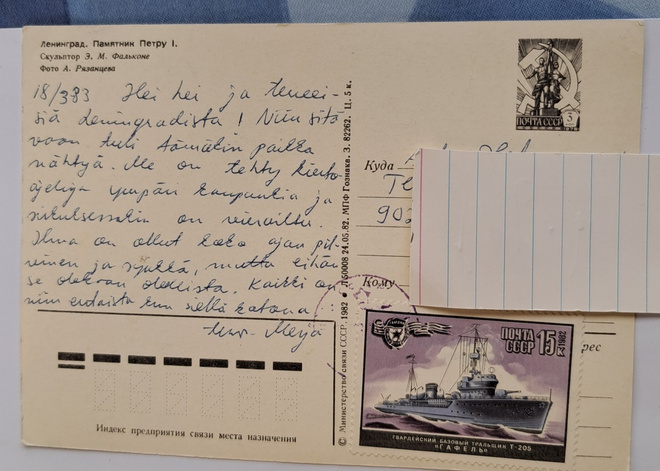 Ленинград. Памятник Петру I.
Скульптор Э. М. Фальконе
Фото А. Рязанцева
18/3 83 Hei hei ja terveei-
siä Leningradista! Niin sitä
vaan tuli tämäkin paikka
nähtyä. Me on tehty kierto
ajeluja ympäri kaupunkia ja
sirkuksessakin on vierailtu.
Ilma on ollut koko ajan pil-
vinen ja , mutta eihän
se olekaan oleellista. Kaikki on
niin erilaista kun siellä kotona.
Merja
Индекс предприятия связи места назначения
© Министерство связи СССР. 1982 • Л50008 24.05.82. МПФ Гознака. З. 82262. Ц. 5 к.
ПОЧТА СССР 3
Куда
Кому
рес
ПОЧТА
СССР
15 к
1982
ГВАРДЕЙСКИЙ БАЗОВЫЙ ТРАЛЬЩИК Т-205
"ГАФЕЛЬ"